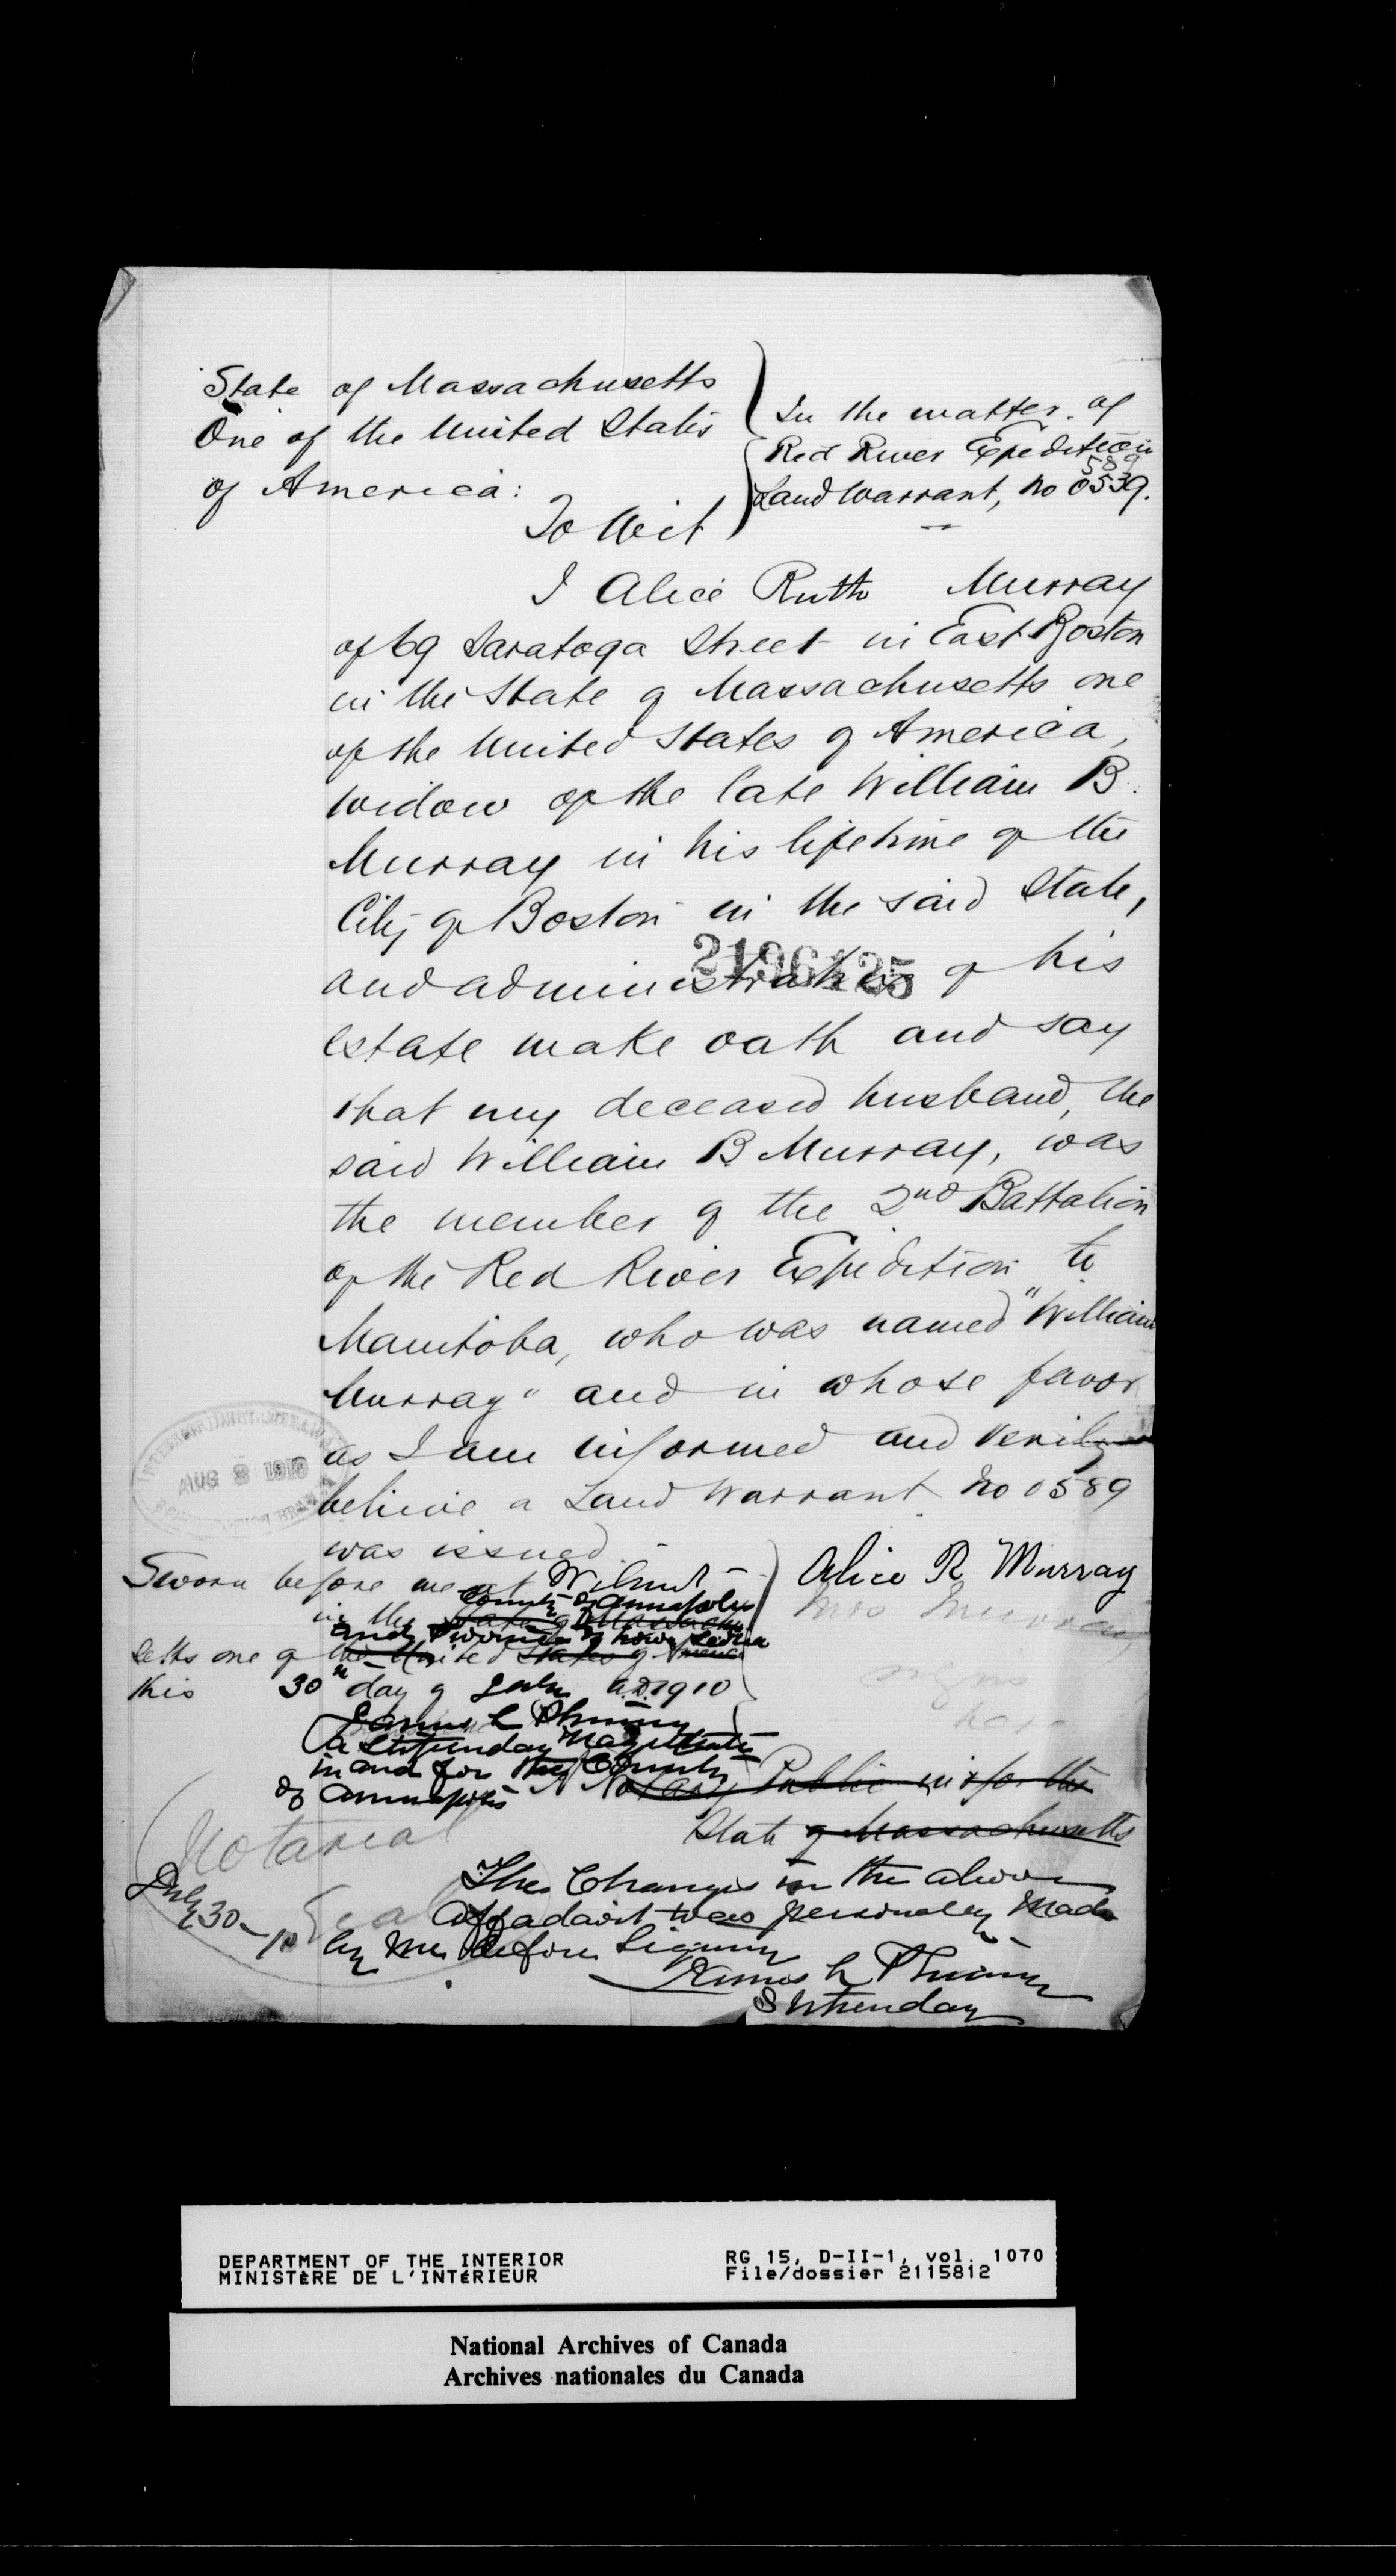 State of Massachusetts
One of the United States
of America:
To Wit
In the matter of
Red River Expedition
589
Land Warrant, No 0539.
I Alice Ruth Murray
of 69 Saratoga Street in East Boston
in the State of Massachusetts one
of the United States of America,
widow of the late William B.
Murray in his lifetime of the
City of Boston in the said State,
2196425
and administratrix of his
estate make oath and say
that my deceased husband, the
said William B. Murray, was
the member of the 2nd Battalion
of the Red River Expedition to
Manitoba, who was named "William
Murray" and in whose favor
as I am informed and verily
believe a Land Warrant No 0589
was issued
AUG 8 1910
Sworn before me at Wilmot
County of Annapolis
in the State of Massachu
and Province of Nova Scotia
setts one of the United States of America
this 30th day of July A.D. 1910
Alice R Murray
Mrs Murray
signs
here
James L Phinney
a Stipendary Magistrate
in and for the County
of Annapolis
A Notary Public in & for the
State of Massachusetts
Notarial
Seal
July 30 - 10
The Changes in the above
Affadavit was personaly Made
by Me before Signing
James L Phinney
Stipendary
DEPARTMENT OF THE INTERIOR
MINISTÈRE DE L'INTÉRIEUR
RG 15, D-II-1, vol. 1070
File/dossier 2115812
National Archives of Canada
Archives nationales du Canada